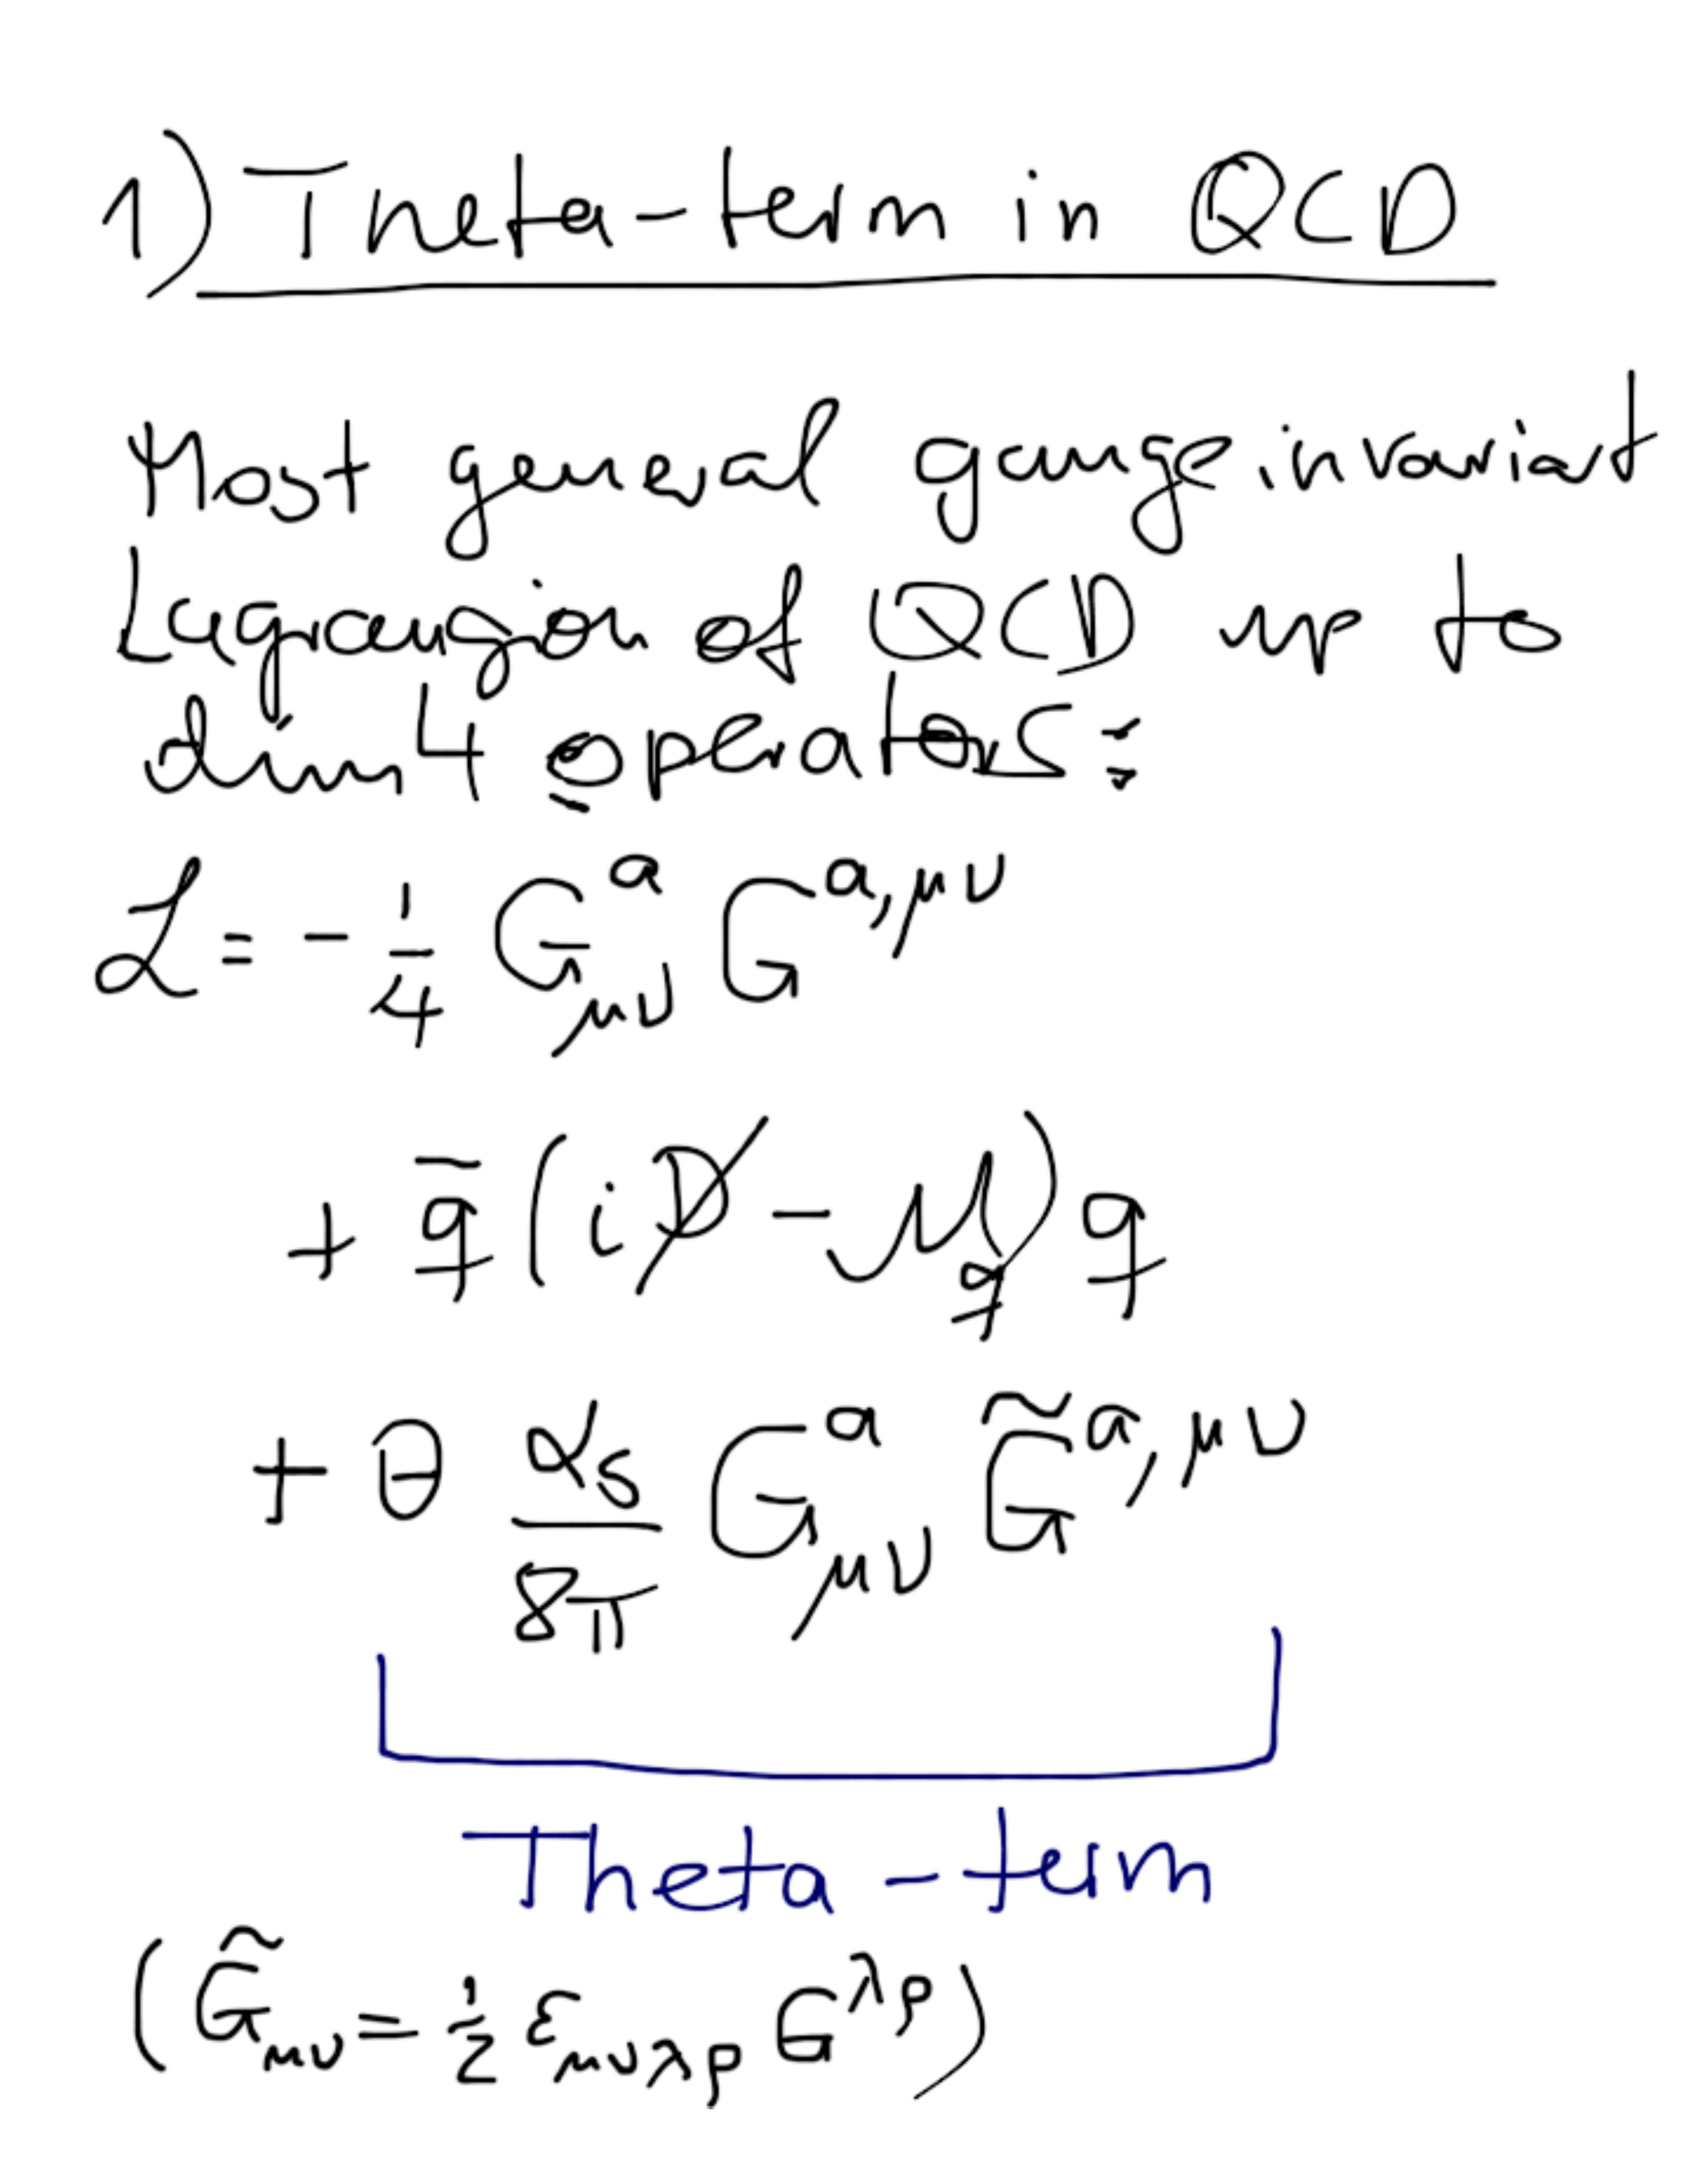 1) Theta-term in QCD
Most general gauge invariant
Lagrangian of QCD up to
dim 4 operators:
ℒ = - 1/4 G^a_{μν} G^{a,μν}
+ q̄ (i D̸ - ℳ_q) q
+ θ α_s/8π G^a_{μν} G̃^{a,μν}
Theta-term
(G̃_{μν} = 1/2 ε_{μνλρ} G^{λρ})